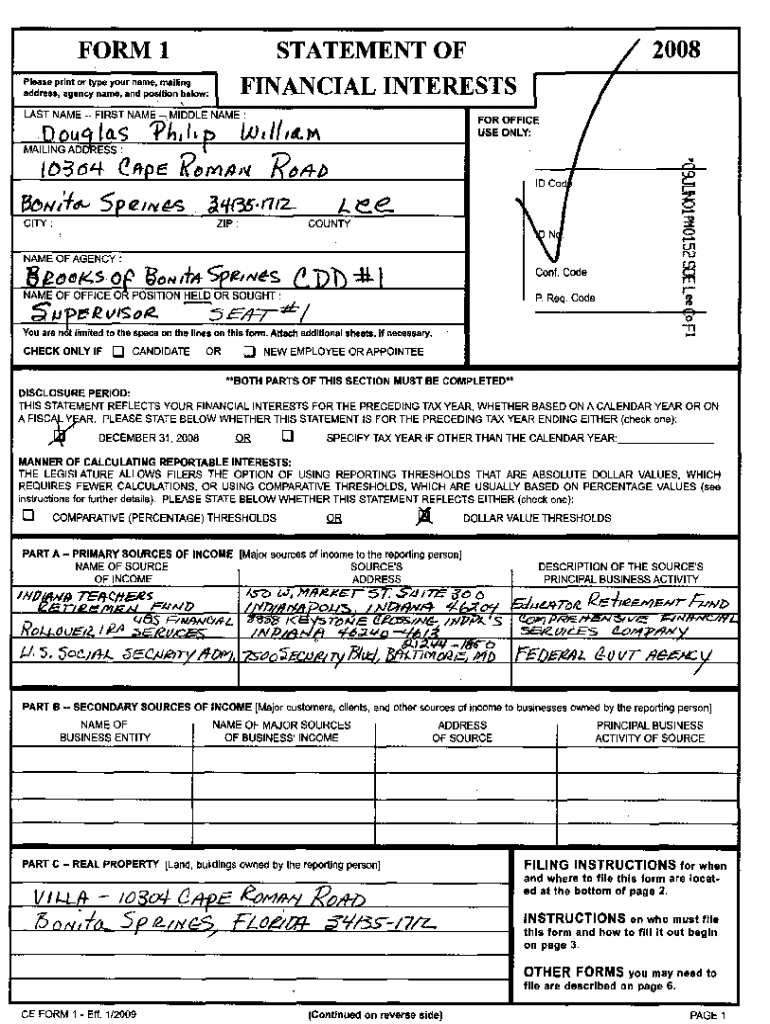 FORM 1 STATEMENT OF 2008
FINANCIAL INTERESTS
Please print or type your name, mailing
address, agency name, and position below:
LAST NAME -- FIRST NAME -- MIDDLE NAME :
Douglas Philip William
MAILING ADDRESS :
10304 CAPE ROMAN ROAD
BONITA SPRINGS 34135-1712 LEE
CITY : ZIP : COUNTY
NAME OF AGENCY :
BROOKS OF BONITA SPRINGS CDD #1
NAME OF OFFICE OR POSITION HELD OR SOUGHT :
SUPERVISOR SEAT #1
You are not limited to the space on the lines on this form. Attach additional sheets, if necessary.
CHECK ONLY IF CANDIDATE OR NEW EMPLOYEE OR APPOINTEE
FOR OFFICE
USE ONLY:
ID Code
ID No.
Conf. Code
P. Req. Code
'09JUN01PM0152 SOE Lee Co Fl
**BOTH PARTS OF THIS SECTION MUST BE COMPLETED**
DISCLOSURE PERIOD:
THIS STATEMENT REFLECTS YOUR FINANCIAL INTERESTS FOR THE PRECEDING TAX YEAR, WHETHER BASED ON A CALENDAR YEAR OR ON
A FISCAL YEAR. PLEASE STATE BELOW WHETHER THIS STATEMENT IS FOR THE PRECEDING TAX YEAR ENDING EITHER (check one):
DECEMBER 31, 2008 OR SPECIFY TAX YEAR IF OTHER THAN THE CALENDAR YEAR:
MANNER OF CALCULATING REPORTABLE INTERESTS:
THE LEGISLATURE ALLOWS FILERS THE OPTION OF USING REPORTING THRESHOLDS THAT ARE ABSOLUTE DOLLAR VALUES, WHICH
REQUIRES FEWER CALCULATIONS, OR USING COMPARATIVE THRESHOLDS, WHICH ARE USUALLY BASED ON PERCENTAGE VALUES (see
instructions for further details). PLEASE STATE BELOW WHETHER THIS STATEMENT REFLECTS EITHER (check one):
COMPARATIVE (PERCENTAGE) THRESHOLDS OR DOLLAR VALUE THRESHOLDS
PART A -- PRIMARY SOURCES OF INCOME [Major sources of income to the reporting person]
NAME OF SOURCE SOURCE'S DESCRIPTION OF THE SOURCE'S
OF INCOME ADDRESS PRINCIPAL BUSINESS ACTIVITY
INDIANA TEACHERS 150 W. MARKET ST. SUITE 300
RETIREMEN FUND INDIANAPOLIS, INDIANA 46204 EDUCATOR RETIREMENT FUND
UBS FINANCIAL 8888 KEYSTONE CROSSING INDPL'S COMPREHENSIVE FINANCIAL
ROLLOVER IRA SERVICES INDIANA 46240-4613 SERVICES COMPANY
21244-1850
U.S. SOCIAL SECURITY ADM. 7500 SECURITY Blvd, BALTIMORE, MD FEDERAL GOVT AGENCY
PART B -- SECONDARY SOURCES OF INCOME [Major customers, clients, and other sources of income to businesses owned by the reporting person]
NAME OF NAME OF MAJOR SOURCES ADDRESS PRINCIPAL BUSINESS
BUSINESS ENTITY OF BUSINESS' INCOME OF SOURCE ACTIVITY OF SOURCE
PART C -- REAL PROPERTY [Land, buildings owned by the reporting person]
VILLA - 10304 CAPE ROMAN ROAD
BONITA SPRINGS, FLORIDA 34135-1712
FILING INSTRUCTIONS for when
and where to file this form are locat-
ed at the bottom of page 2.
INSTRUCTIONS on who must file
this form and how to fill it out begin
on page 3.
OTHER FORMS you may need to
file are described on page 6.
CE FORM 1 - Eff. 1/2009 (Continued on reverse side) PAGE 1